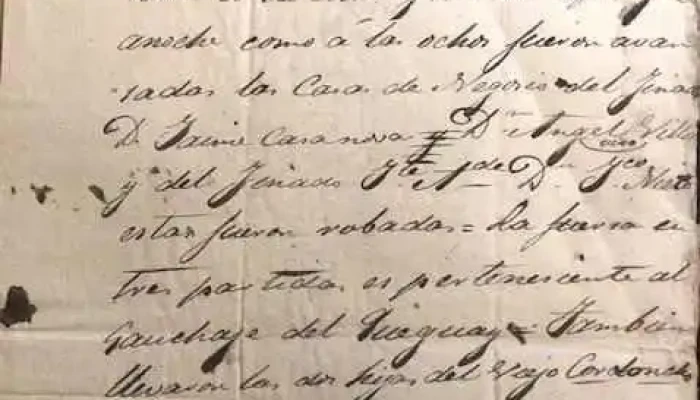 anoche como á las ochos fueron avan
sadas las Casa de Negocio del finad
D. Jaime Casanovas y Dn Angel Villa
y del finado Dn
estas fueron robadas = La fuersa en
tres partidas es perteneciente al
Gauchage del Queguay = Tambien
llevaron las dos hijas del Viejo Cordonch